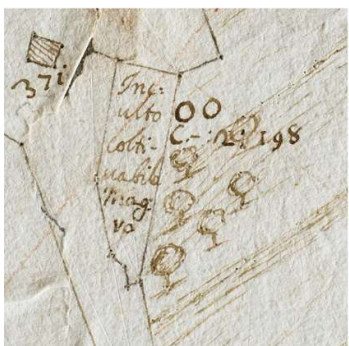 371
Inc:
ulto
colti-
uabile
mag:
ro
OO
C-: 2: 198